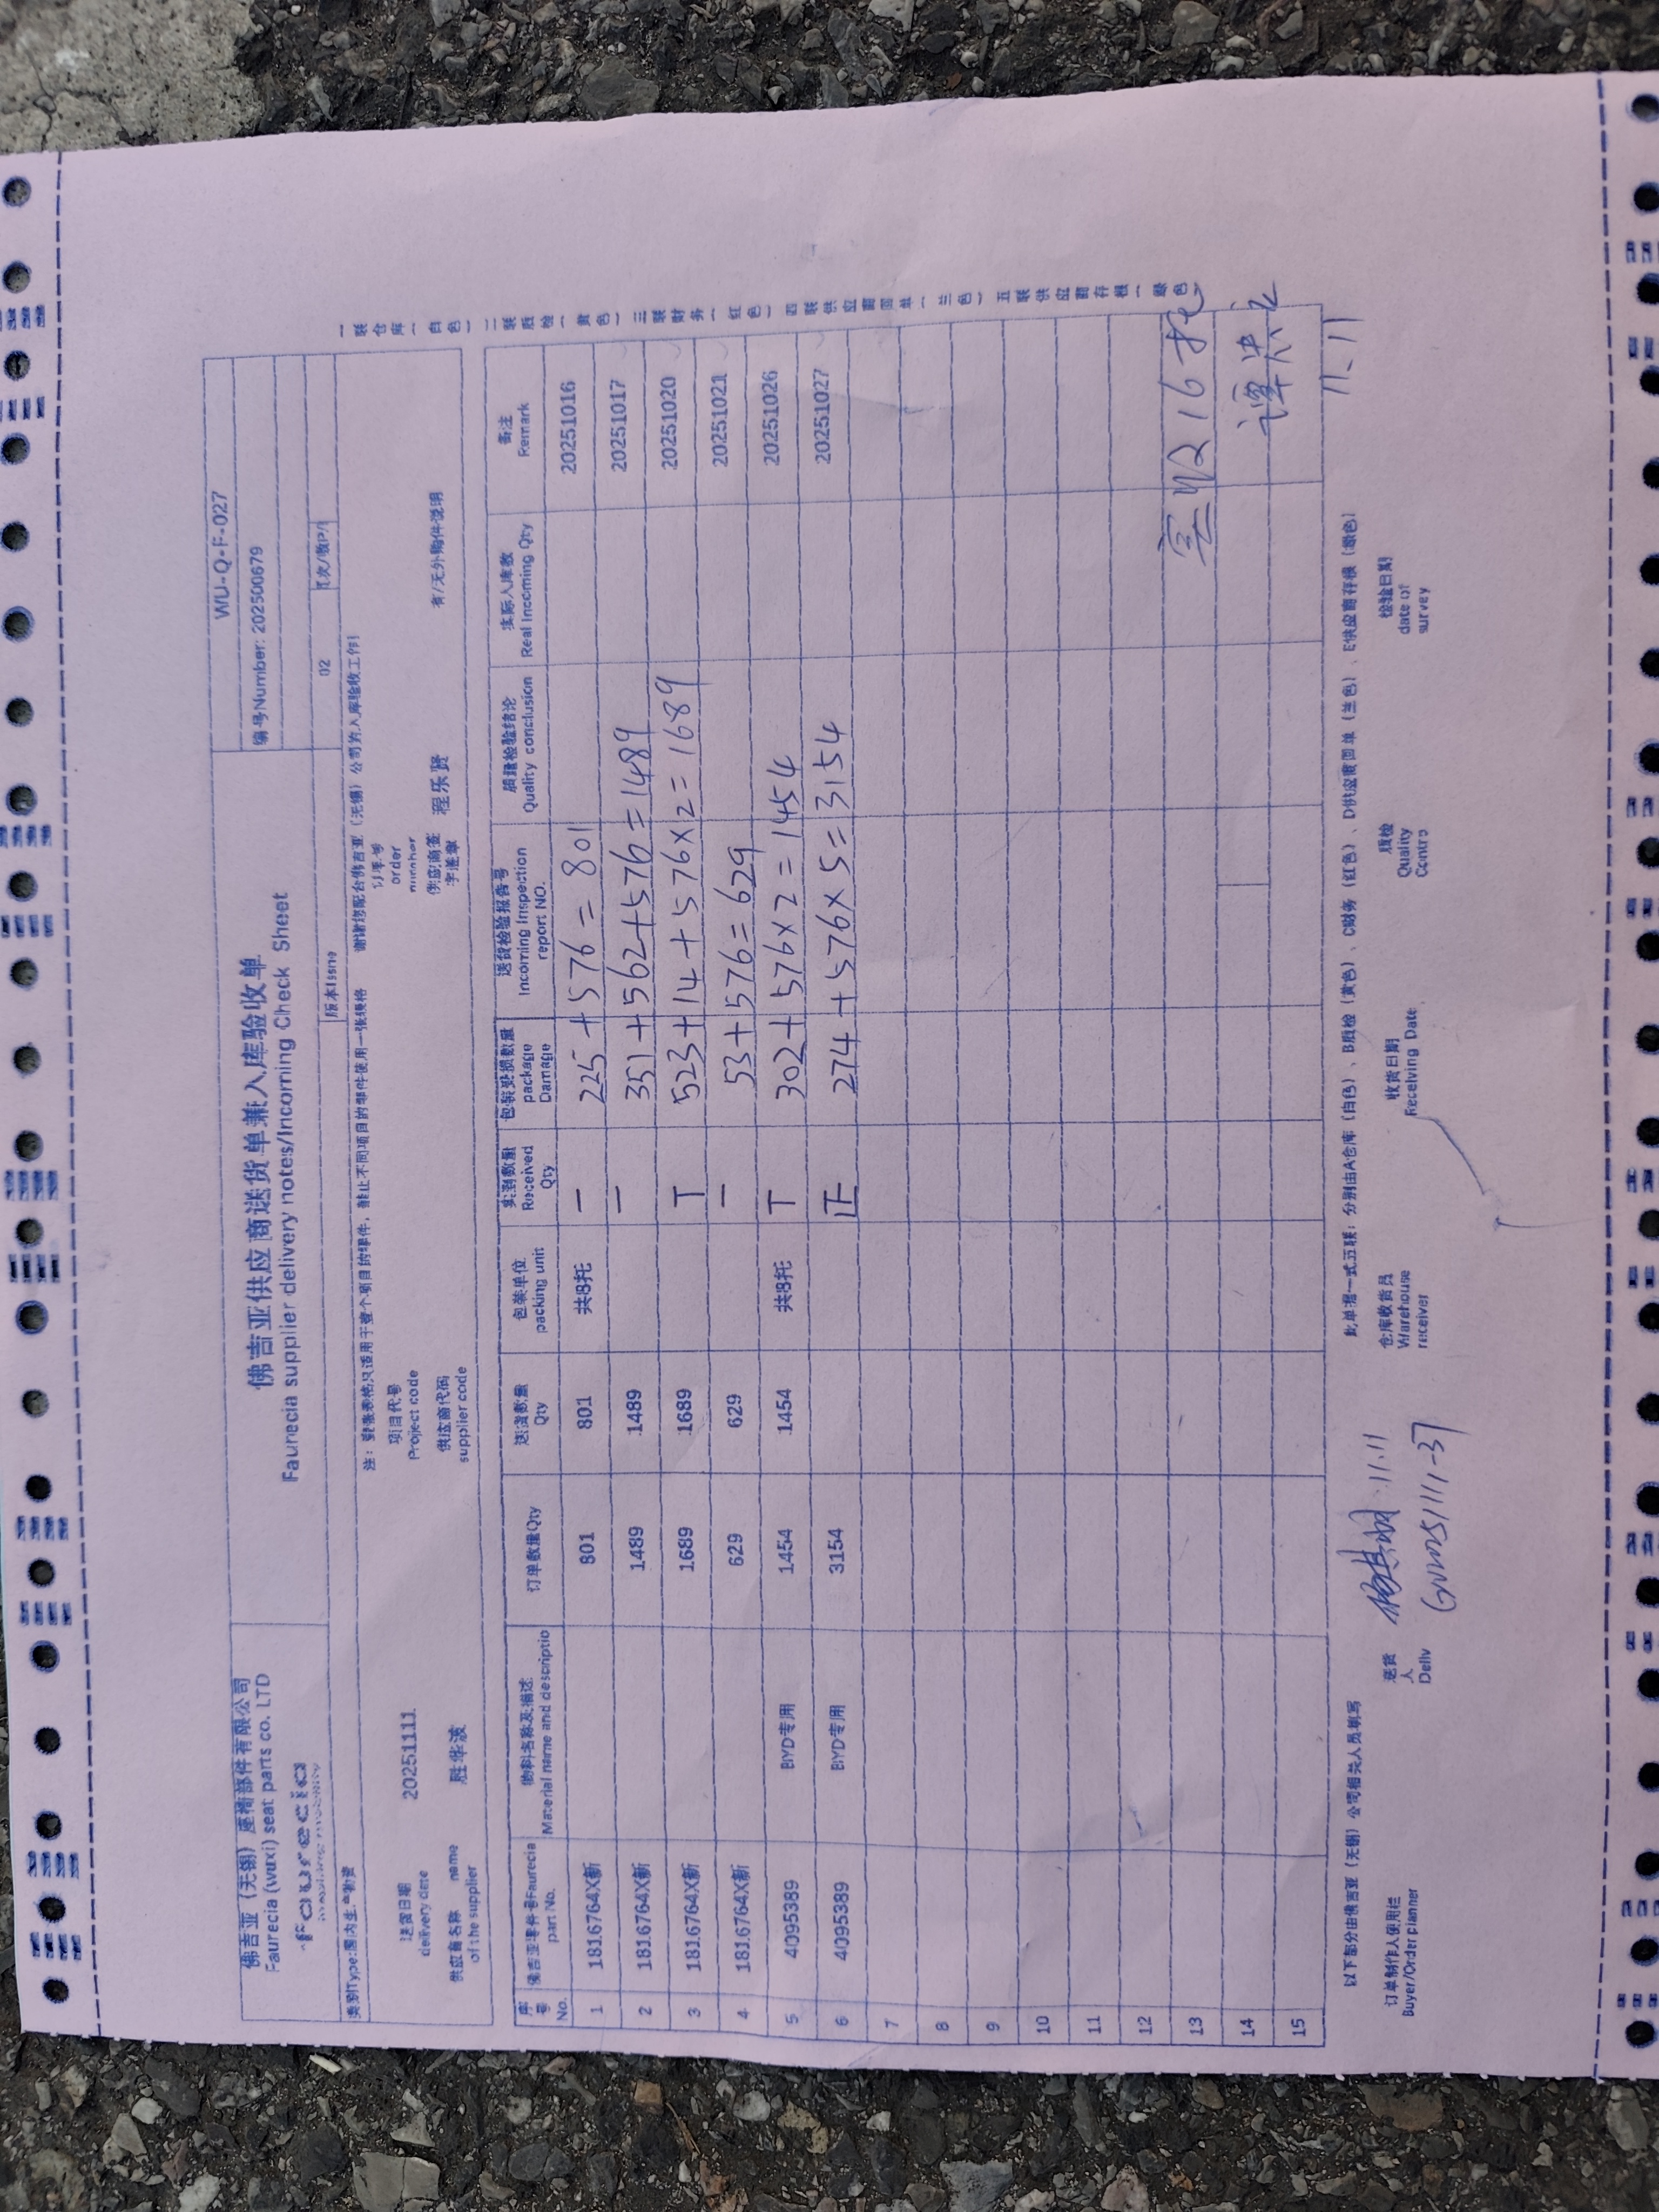 佛吉亚（无锡）座椅部件有限公司
Faurecia (wuxi) seat parts co. LTD
faurecia
佛吉亚供应商送货单兼入库验收单
Faurecia supplier delivery notes/Incoming Check Sheet
WU-Q-F-027
编号Number: 202500679
版本Issno 02
类别Type:国内生产物资
谢谢您配合佛吉亚（无锡）公司的入库验收工作!
送货日期 delivery date 20251111
项目代号 Project code
订单号 order number
供应商名称 name of the supplier 胜华波
供应商代码 supplier code
供应商签字盖章 程乐贤
有/无外购件说明
序号 No. 佛吉亚零件号Faurecia part No. 物料名称及描述 Material name and descriptio 订单数量Qty 送货数量 Qty 包装单位 packing unit 实测数量 Received Qty 包装受损数量 package Damage 送货检验报告号 Incoming Inspection report NO. 质量检验结论 Quality conclusion 实际入库数 Real Incoming Qty 备注 Remark
1 1816764X新 801 801 共8托 一 225+576=801 20251016
2 1816764X新 1489 1489 一 351+562+576=1489 20251017
3 1816764X新 1689 1689 T 523+14+576×2=1689 20251020
4 1816764X新 629 629 一 53+576=629 20251021
5 4095389 BYD专用 1454 1454 共8托 T 302+576×2=1454 20251026
6 4095389 BYD专用 3154 正 274+576×5=3154 20251027
7
8
9
10
11
12
13 实收16托
14
15
11.11
一联仓库（白色）二联质检（黄色）三联财务（红色）四联供应商回单（兰色）五联供应商存根（绿色）
以下部分由佛吉亚（无锡）公司相关人员填写
此单据一式五联：分别由A仓库（白色）、B质检（黄色）、C财务（红色）、D供应商回单（兰色）、E供应商存根（绿色）
订单制作人使用栏 Buyer/Order planner
送货人 Deliv 11.11
仓库收货员 Warehouse receiver
收货日期 Receiving Date
质检 Quality Contro
检验日期 date of survey